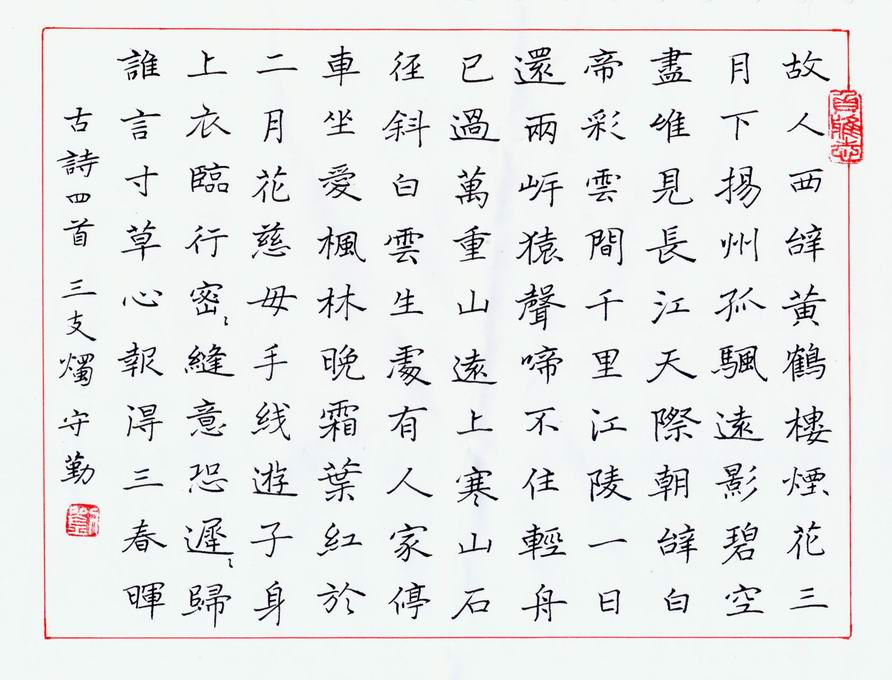 故人西辭黃鶴樓煙花三
月下揚州孤颿遠影碧空
盡唯見長江天際朝辭白
帝彩雲間千里江陵一日
還兩岸猿聲啼不住輕舟
已過萬重山遠上寒山石
徑斜白雲生處有人家停
車坐愛楓林晚霜葉紅於
二月花慈母手线遊子身
上衣臨行密〻縫意恐遲〻歸
誰言寸草心報得三春暉
古詩四首 三支燭 守勤